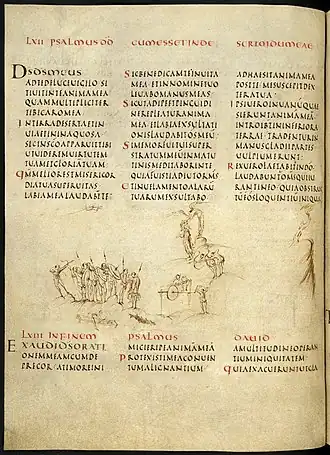 LXII PSALMUS DD CUM ESSET IN DE SERTO IDUMEAE
DSDSMEUS
ADTEDELUCEUIGILO SI
TIUITINTEANIMAMEA
QUAMMULTIPLICITER
TIBICAROMEA
INTERRADESERTAETIN
UIAETINAQUOSA
SICINSCOAPPARUITIBI
UTUIDEREMUIRTUTEM
TUAMETGLORIATUAM
QMMELIORESTMISERICOR
DIATUASUPERUITAS
LABIAMEALAUDABTE
SICBENEDICAMTEINUITA
MEA ETINNOMINETUO
LEUABOMANUSMEAS
SICUTADIPEETPINGUEDI
NEREPLEATURANIMA
MEA ETLABIAEXSULTATI
ONISLAUDABITOSMEU
SIMEMORFUITUISUPER
STRATUMMEUMINMATU
TINISMEDITABORINTE
QUIAFUISTIADIUTORMS
ETINUELAMENTOALARU
TUARUMEXSULTABO
ADHAESITANIMAMEA
POSTTEMESUSCEPITDEX
TERATUA
IPSIUEROINUANUQUE
SIERUNTANIMAMEA
INTROIBUNTININFERIORA
TERRAETRADENTURIN
MANUSGLADIIPARTES
UULPIUMERUNT
REXUEROLAETABITINDO
LAUDABUNTOMSQUIIU
RANTINEOQUIAOBSTRUC
TUESTOSLOQUENTIUINIQUA
LXIII IN FINEM PSALMUS DAVID
EXAUDIDSORATI
ONEMMEAMCUMDE
PRECOR ATIMOREINI
MICIERIPEANIMAMEA
PROTEXISTIMEACONUEN
TUMALIGNANTIUM
AMULTITUDINEOPERAN
TIUMINIQUITATEM
QUIAEXACUERUNTUTGLA